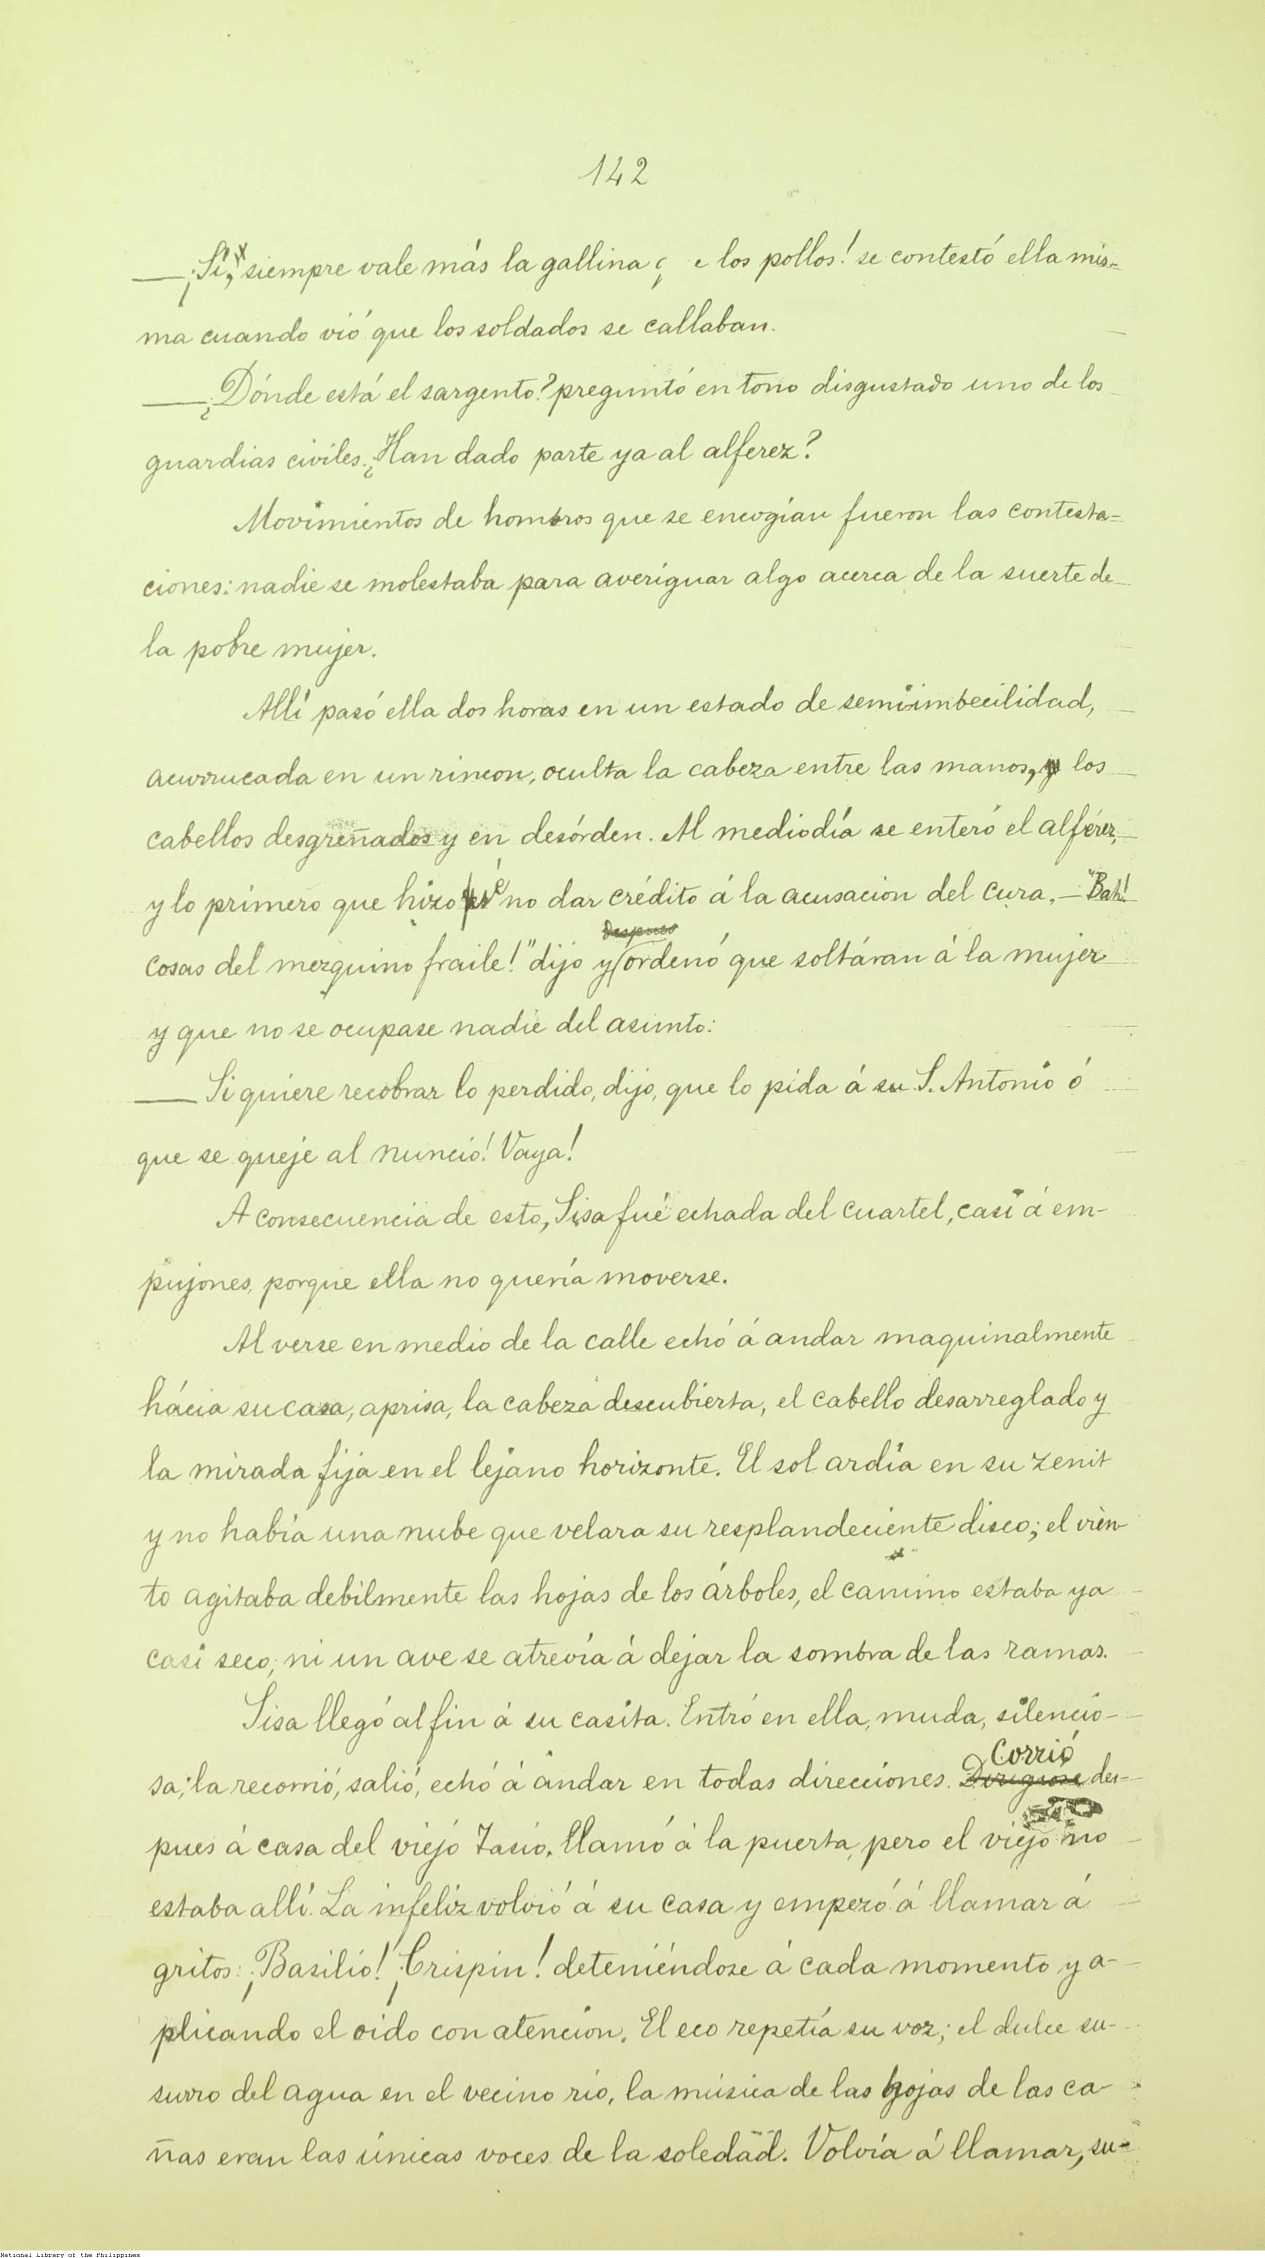 142
— ¡Sí, siempre vale más la gallina q e los pollos! se contestó ella mis-
ma cuando vió que los soldados se callaban.
— ¿Dónde está el sargento? preguntó en tono disgustado uno de los
guardias civiles. ¿Han dado parte ya al alferez?
Movimientos de hombros que se encogían fueron las contesta-
ciones: nadie se molestaba para averiguar algo acerca de la suerte de
la pobre mujer.
Allí pasó ella dos horas en un estado de semiimbecilidad,
acurrucada en un rincon, oculta la cabeza entre las manos, y los
cabellos desgreñados y en desórden. Al mediodía se enteró el alférez,
y lo primero que hizo fué no dar crédito á la acusacion del cura. — "Bah!
Despues
cosas del mezquino fraile!" dijo y ordenó que soltáran á la mujer
y que no se ocupase nadie del asunto:
— Si quiere recobrar lo perdido, dijo, que lo pida á su S. Antonio ó
que se queje al nuncio! Vaya!
A consecuencia de esto, Sisa fué echada del cuartel, casi á em-
pujones, porque ella no quería moverse.
Al verse en medio de la calle echó á andar maquinalmente
hácia su casa, aprisa, la cabeza descubierta, el cabello desarreglado y
la mirada fija en el lejano horizonte. El sol ardía en su zenit
y no había una nube que velara su resplandeciente disco; el vien
to agitaba debilmente las hojas de los árboles, el camino estaba ya
casi seco, ni un ave se atrevía á dejar la sombra de las ramas.
Sisa llegó al fin á su casita. Entró en ella, muda, silencio-
Corrió
sa; la recorrió, salió, echó á andar en todas direcciones. Dirigióse des-
pues á casa del viejo Tasio, llamó á la puerta, pero el viejo no
estaba allí. La infeliz volvió á su casa y empezó á llamar á
gritos: ¡Basilio! ¡Crispin! deteniéndose á cada momento y a-
plicando el oido con atencion. El eco repetía su voz; el dulce su-
surro del agua en el vecino rio, la música de las hojas de las ca-
ñas eran las únicas voces de la soledad. Volvía á llamar, su-
National Library of the Philippines